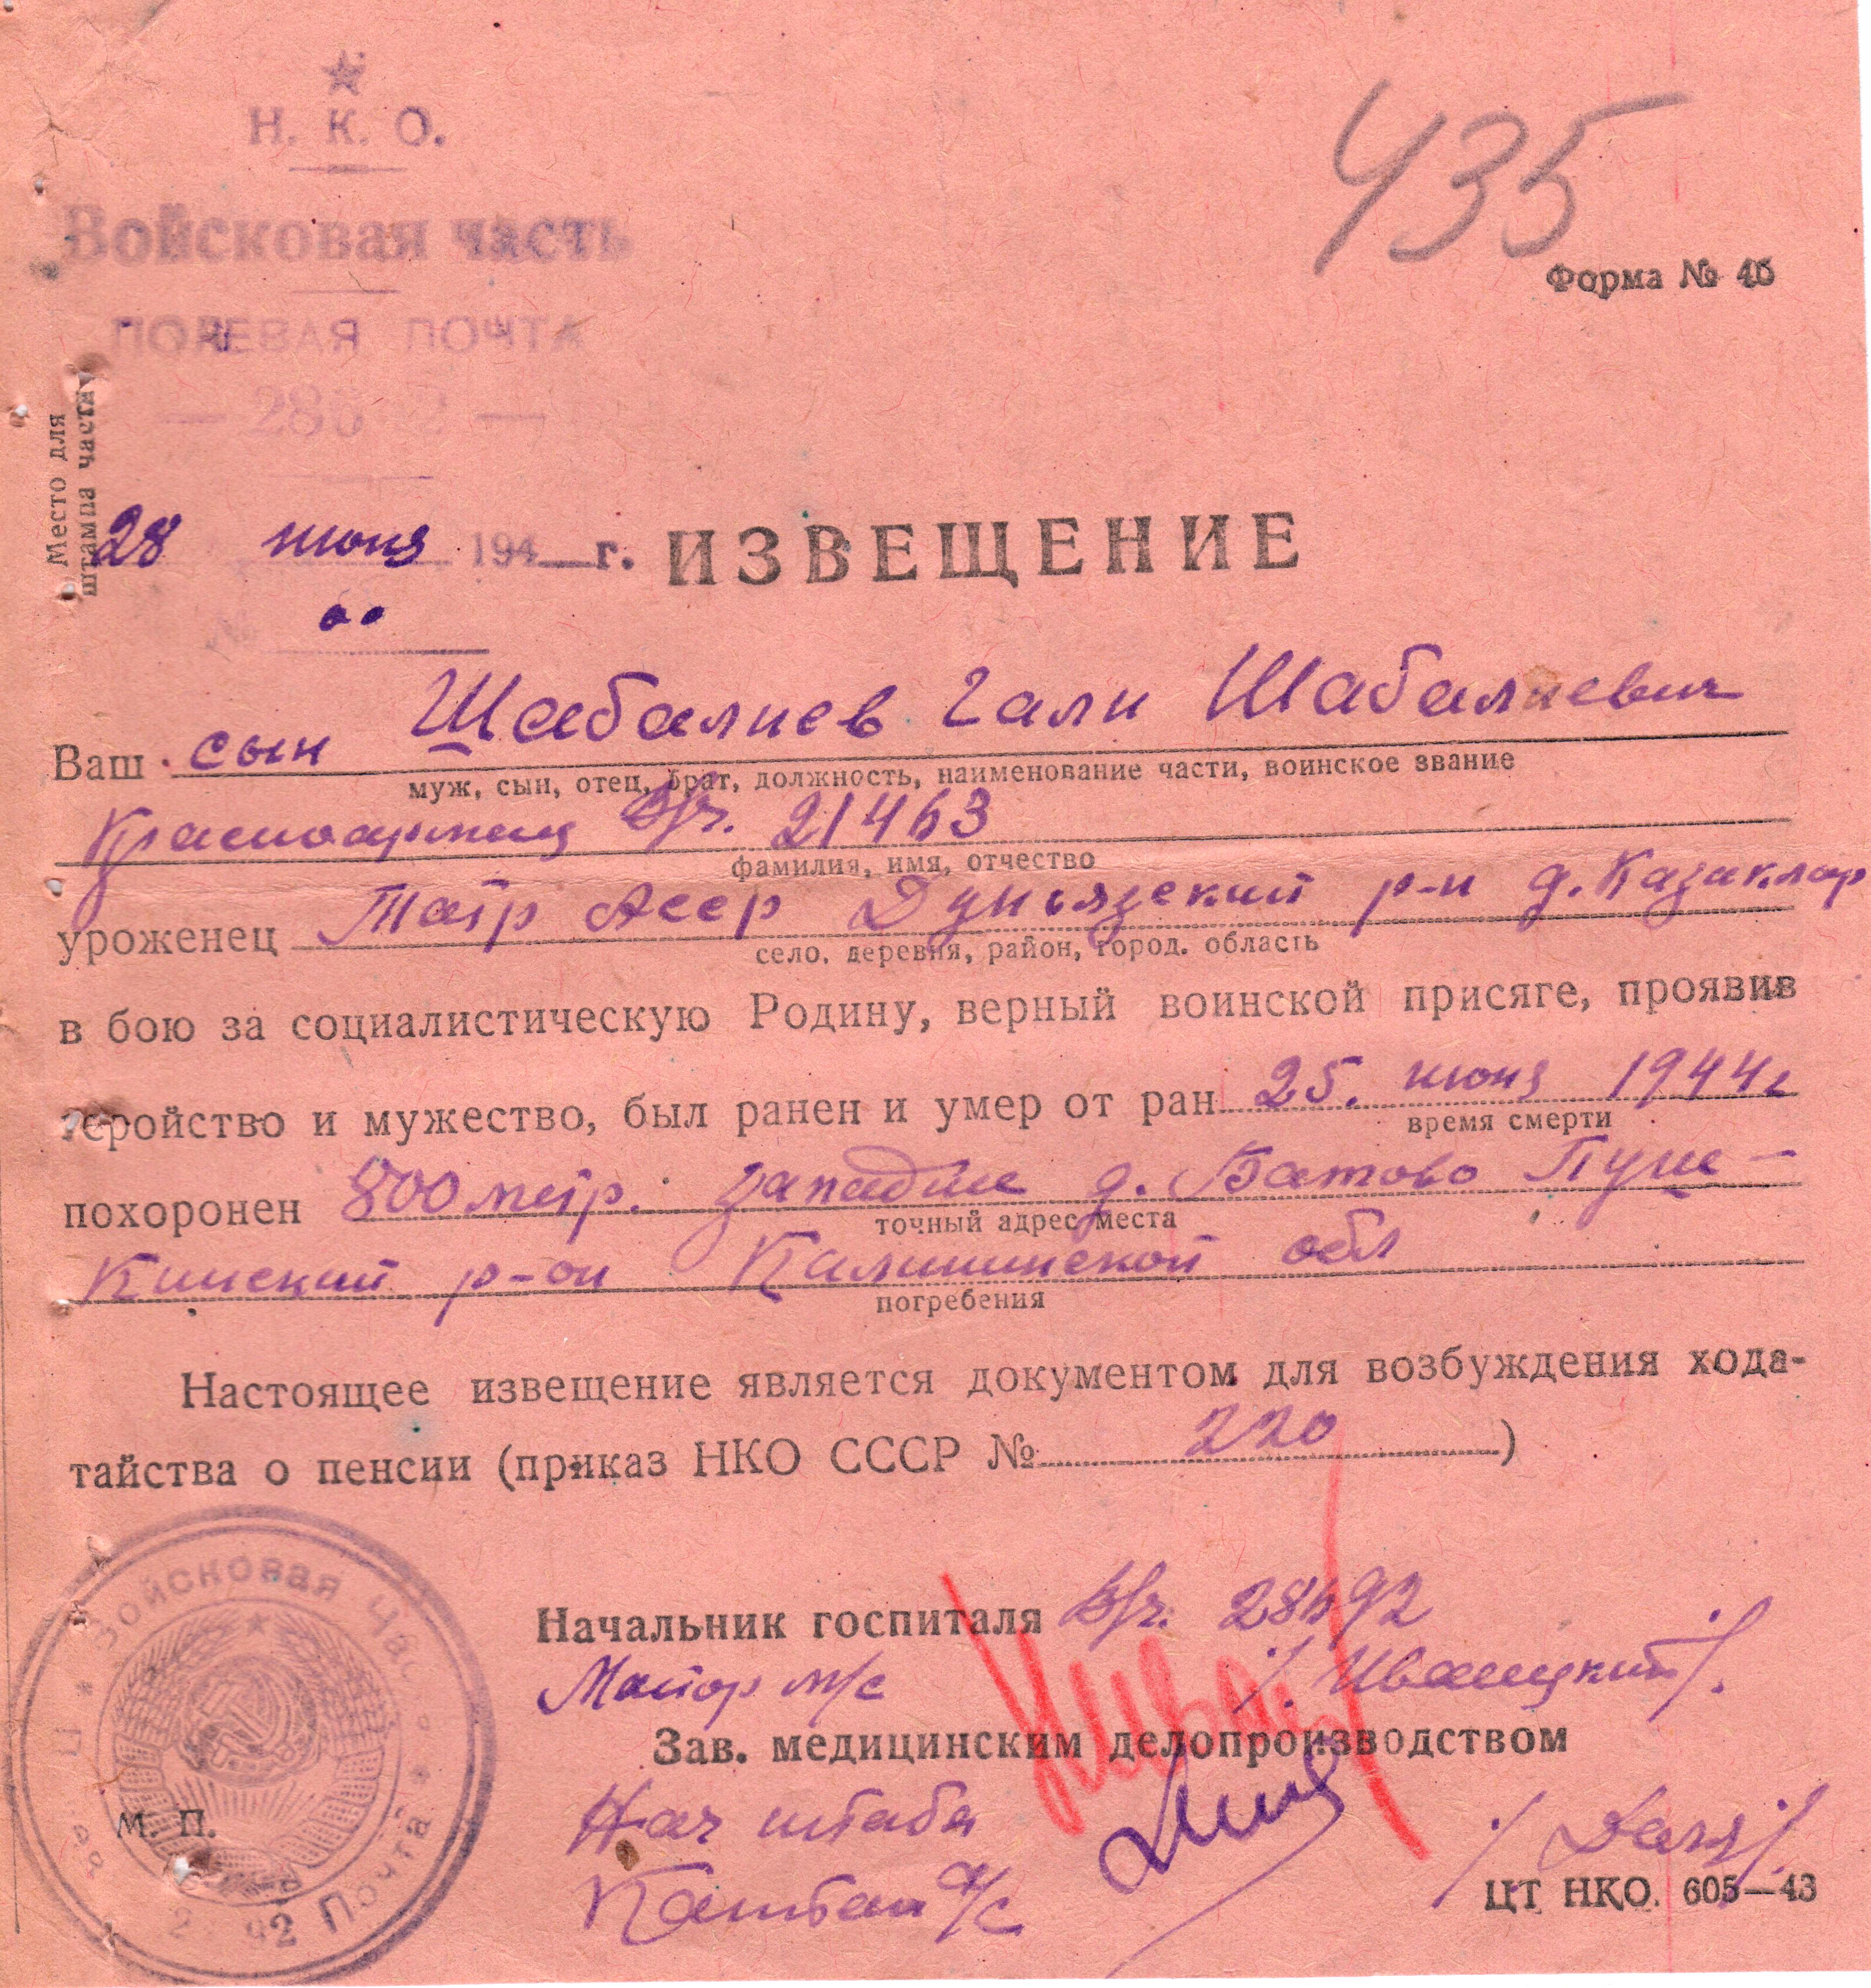 Н. К. О.
435
Войсковая часть
Форма № 4б
ПОЛЕВАЯ ПОЧТА
Место для
штампа части
28 июня 194 г. ИЗВЕЩЕНИЕ
№
Шабалиев Гали Шабалиевич
Ваш сын
муж, сын, отец, брат, должность, наименование части, воинское звание
Красноармеец в/ч. 21463
фамилия, имя, отчество
уроженец Татр Асср Дуньязский р-н д. Казаклар
село, деревня, район, город. область
в бою за социалистическую Родину, верный воинской присяге, проявив
геройство и мужество, был ранен и умер от ран 25. июня 1944г
время смерти
похоронен 800 метр. западнее д. Батово Пуш-
точный адрес места
кинский р-он Калининской обл
погребения
Настоящее извещение является документом для возбуждения хода-
тайства о пенсии (приказ НКО СССР № 220)
Войсковая Час
Начальник госпиталя в/ч. 28692
Майор м/с /Иваницкий/.
Зав. медицинским делопроизводством
М. П.
Нач штаба
Почта
ЦТ НКО. 605—43